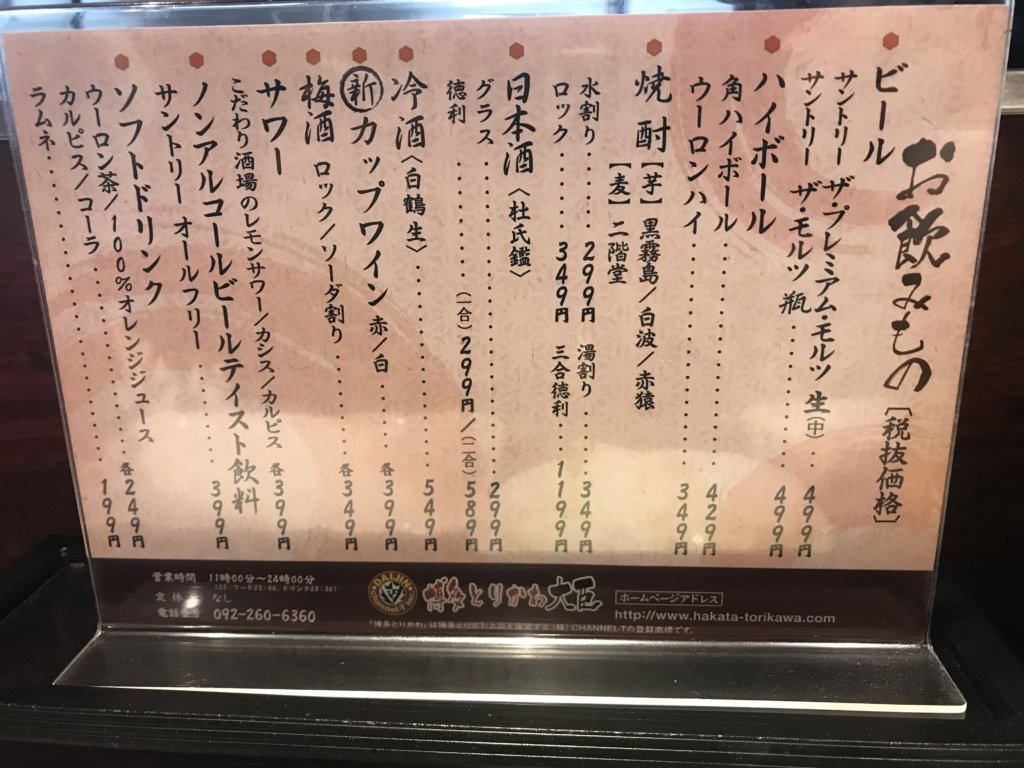 お飲みもの［税抜価格］
ビール
サントリー ザ・プレミアム・モルツ 生(中)‥499円
サントリー ザ・モルツ 瓶‥‥‥‥499円
ハイボール
角ハイボール‥‥‥‥‥‥‥429円
ウーロンハイ‥‥‥‥‥‥‥349円
焼酎 【芋】黒霧島／白波／赤猿
【麦】二階堂
水割り‥‥‥299円 湯割り‥‥‥349円
ロック‥‥‥349円 三合徳利‥1199円
日本酒〈杜氏鑑〉
グラス‥‥‥‥‥‥‥‥‥299円
徳利‥‥‥‥(一合)299円／(二合)589円
冷酒〈白鶴 生〉‥‥‥‥‥549円
新カップワイン 赤／白‥‥各399円
梅酒 ロック／ソーダ割り‥‥各349円
サワー
こだわり酒場のレモンサワー／カシス／カルピス 各399円
ノンアルコールビールテイスト飲料
サントリー オールフリー‥‥‥399円
ソフトドリンク
ウーロン茶／100％オレンジジュース
カルピス／コーラ‥‥‥‥‥各249円
ラムネ‥‥‥‥‥‥‥‥‥199円
営業時間 11時00分～24時00分
定休日 なし
電話番号 092-260-6360
DAIJIN
博多とりかわ大臣
ホームページアドレス
http://www.hakata-torikawa.com
「博多とりかわ」は博多とりかわ大臣を運営する（株）CHANNEL-Tの登録商標です。